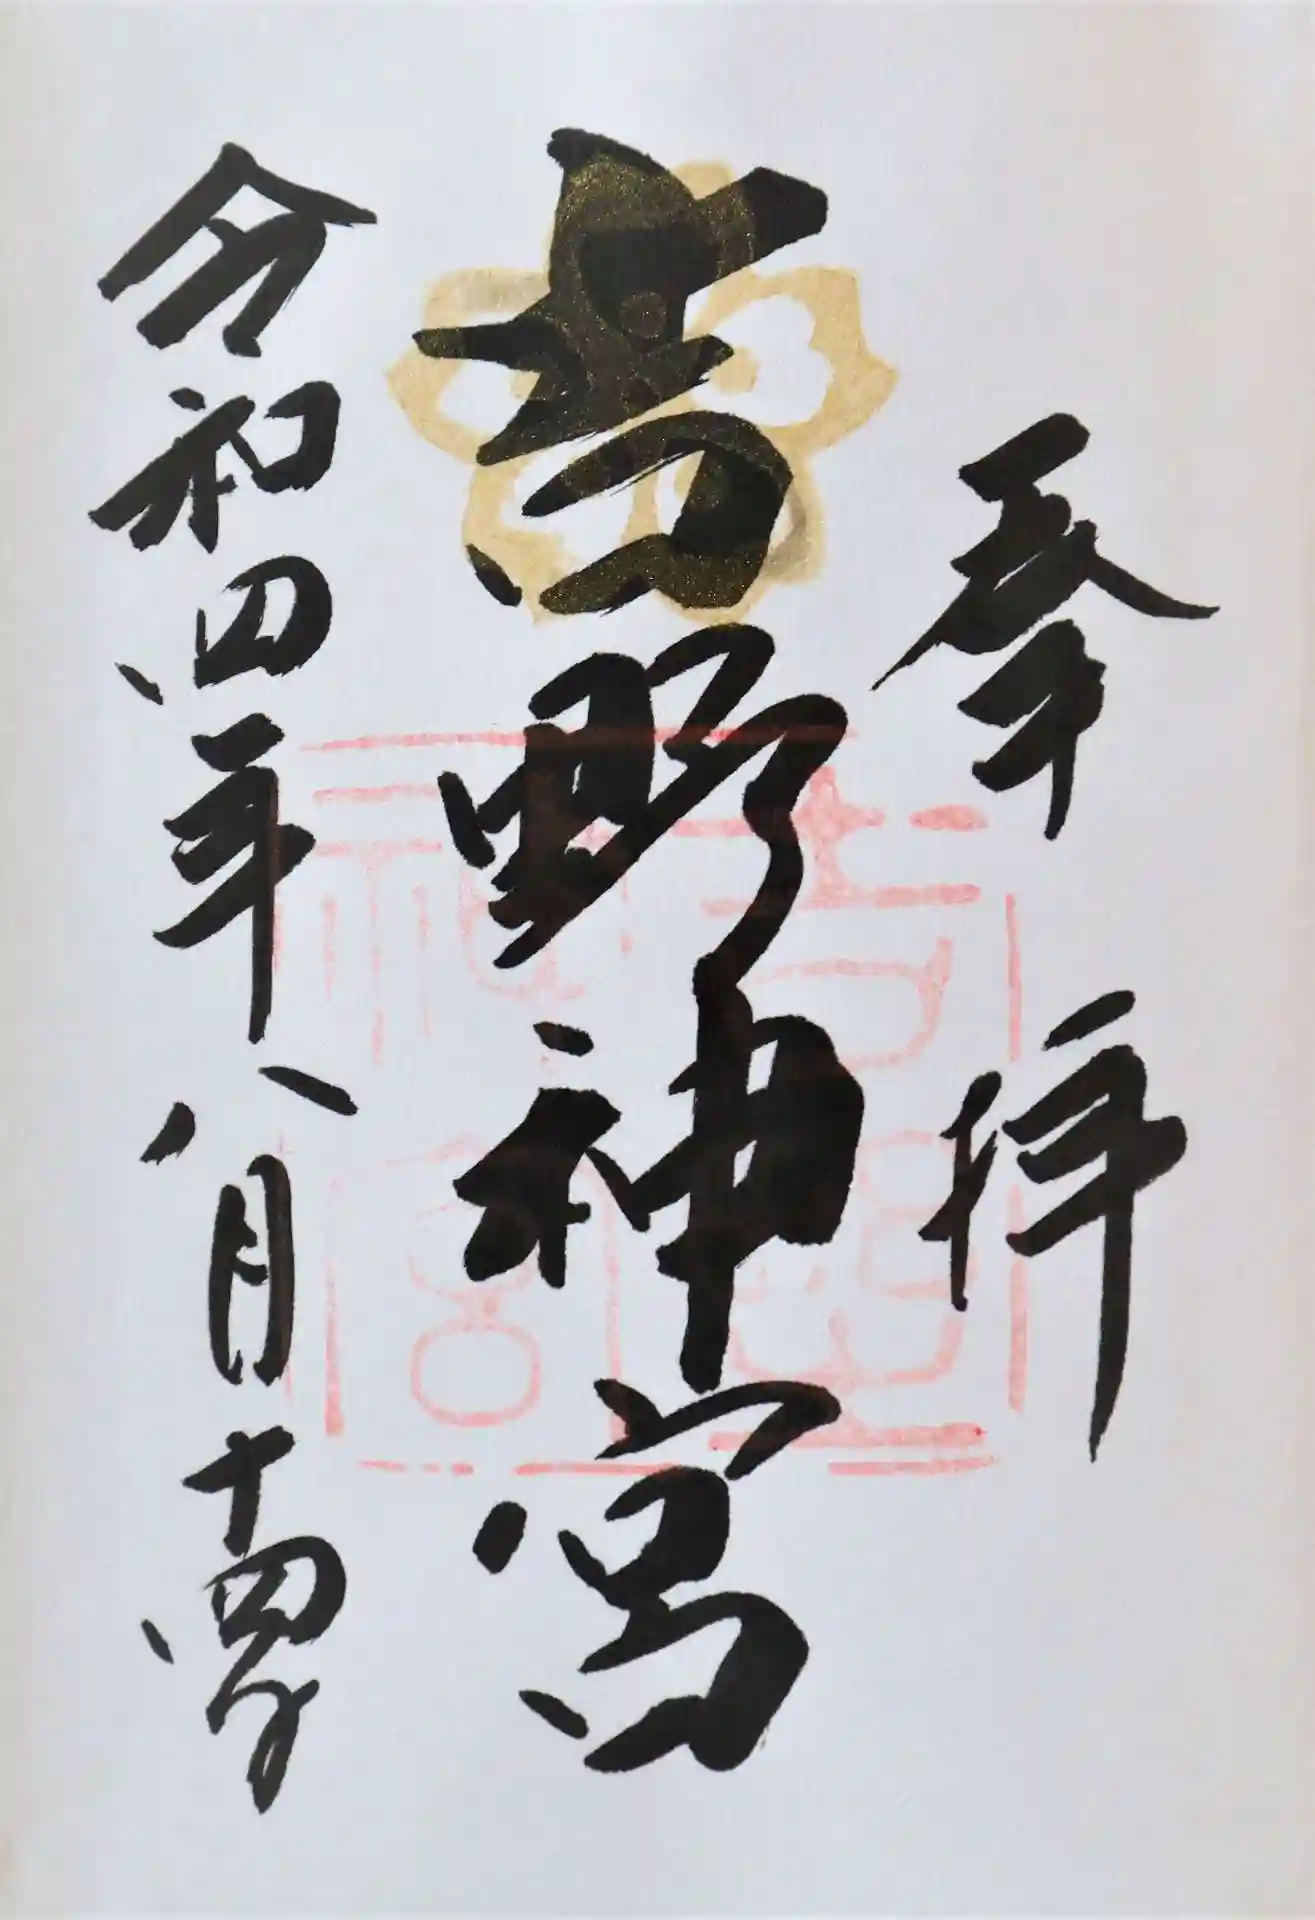 奉拝
吉野神宮
令和四年八月十四日
吉野
神宮